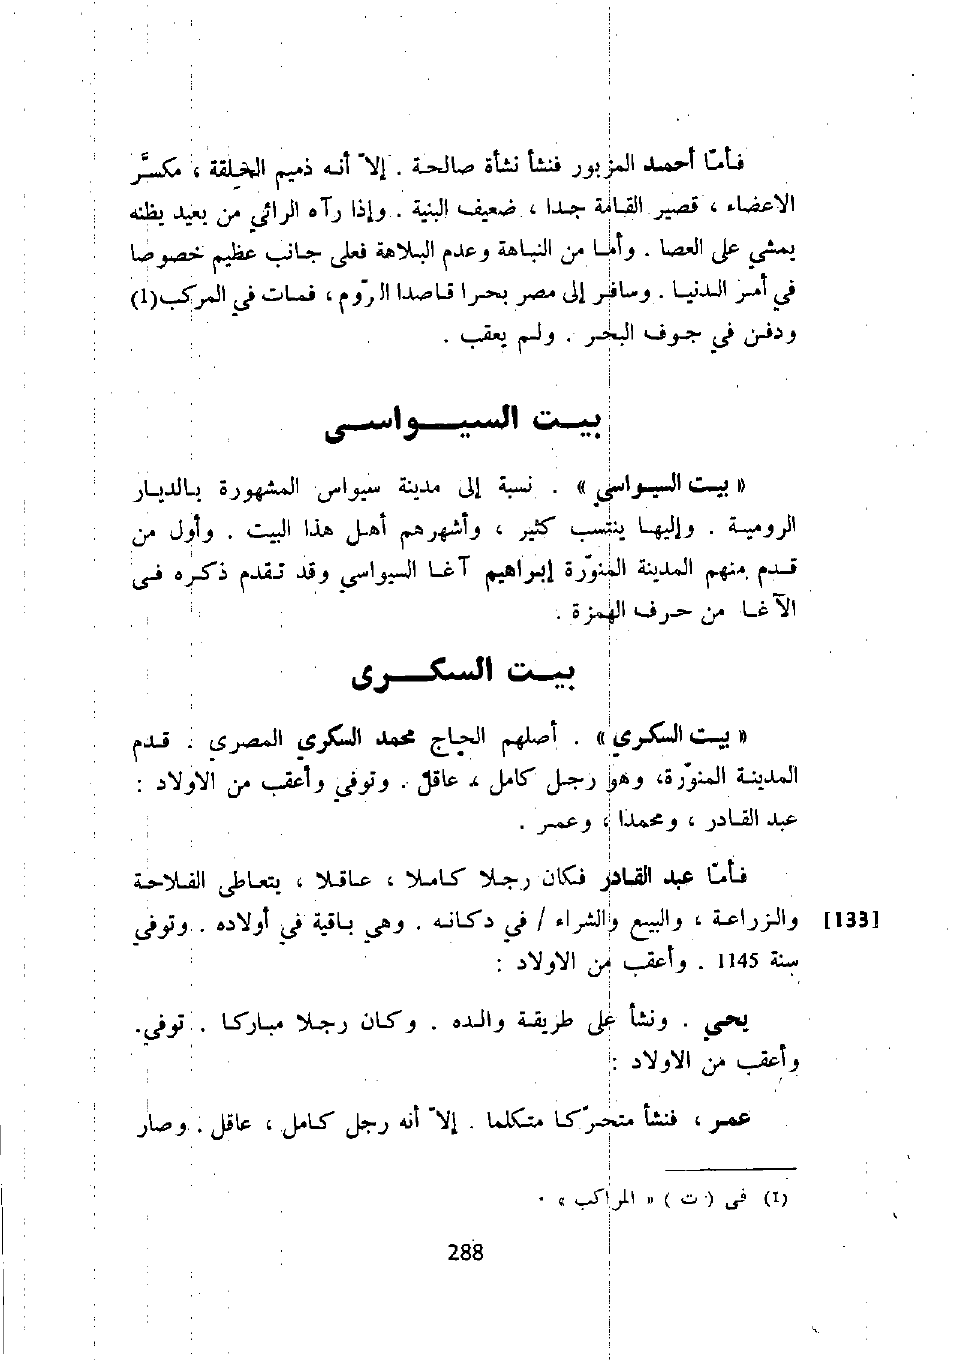 فـأمّا أحمـد المزبور فنشأ نشأة صالحـة . إلاّ أنـه ذميم الخلقة ، مكسَّر
الاعضاء ، قصير القامة جـدا ، ضعيف البنية . وإذا رآه الرائي من بعيد يظنه
يمشي على العصا . وأما من النباهة وعدم البلاهة فعلى جانب عظيم خصوصا
في أمر الدنيا . وسافر إلى مصر بحرا قاصدا الرّوم ، فمات في المركب(1)
ودفن في جوف البحر . ولم يعقب .
بيت السيواسى
« بيت السيواسي » . نسبة إلى مدينة سيواس المشهورة بالديار
الرومية . وإليها ينتسب كثير ، وأشهرهم أهل هذا البيت . وأول من
قدم منهم المدينة المنوّرة إبراهيم آغا السيواسي وقد تقدم ذكره فى
الآغا من حرف الهمزة .
بيت السكرى
« بيت السكري » . أصلهم الحاج محمد السكري المصري . قدم
المدينة المنوّرة، وهو رجل كامل ، عاقل . وتوفي وأعقب من الاولاد :
عبد القادر ، ومحمدا ، وعمر .
فأمّا عبد القادر فكان رجلا كاملا ، عاقلا ، يتعاطى الفلاحة
والزراعة ، والبيع والشراء / في دكانه . وهي باقية في أولاده . وتوفي [133]
سنة 1145 . وأعقب من الاولاد :
يحي . ونشأ على طريقة والده . وكان رجلا مباركا . توفي.
وأعقب من الاولاد :
عمر ، فنشأ متحرّكا متكلما . إلاّ أنه رجل كامل ، عاقل . وصار
(1) فى ( ت ) « المراكب » .
288